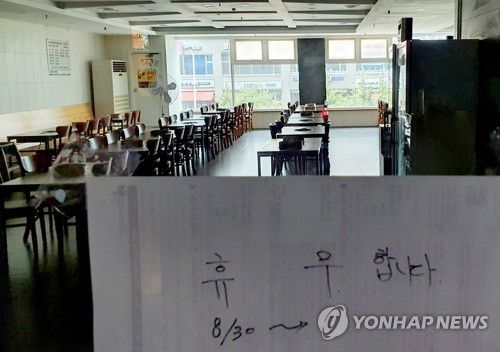 휴 무 합니다.
8/30 ~
YONHAP NEWS